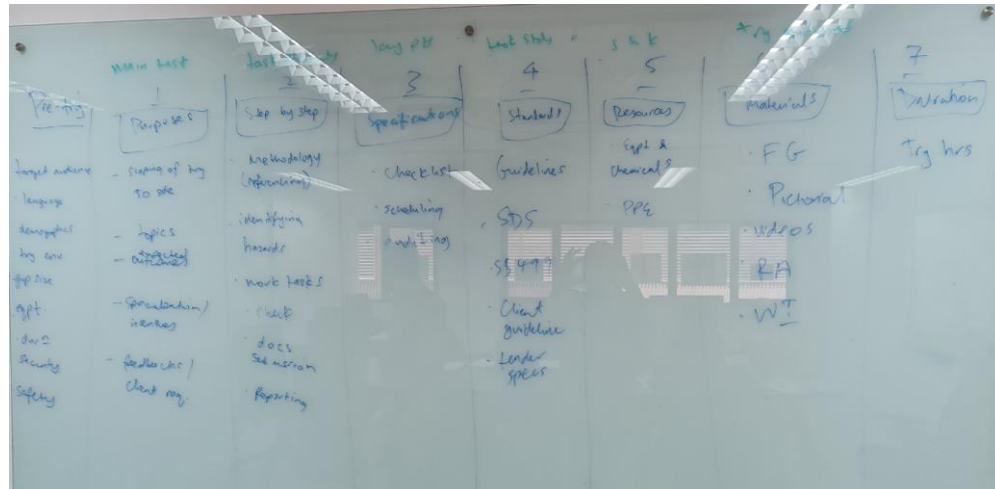 main task
Pre-trg
target audience
· language
demographics
trg env
grp size
eqpt.
security
safety
1
Purposes
- scoping of trg
to site
- topics
- expected
outcomes
- Specialization/
- feedbacks/
client req.
2
Step by step
· Methodology
identifying
hazards
· work tasks
· check
· docs
· Reporting
3
Specifications
· checklist
· scheduling
· auditing
4
Standards
Guidelines
· SDS
· SS 499
· Client
guideline
· tender
specs
s & k
5
Resources
· Eqpt &
chemicals
· PPE
Materials
· FG
· Pictorial
· videos
· RA
· WI
7
Duration
Trg hrs